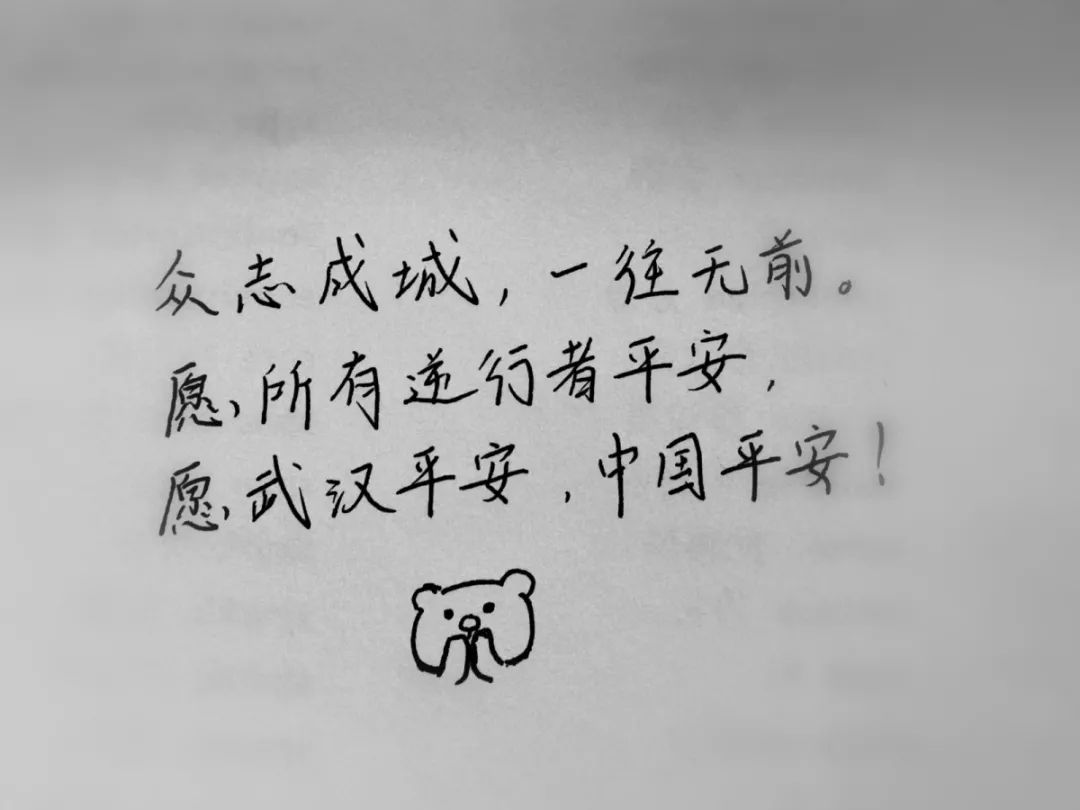 众志成城，一往无前。
愿所有逆行者平安，
愿武汉平安，中国平安！